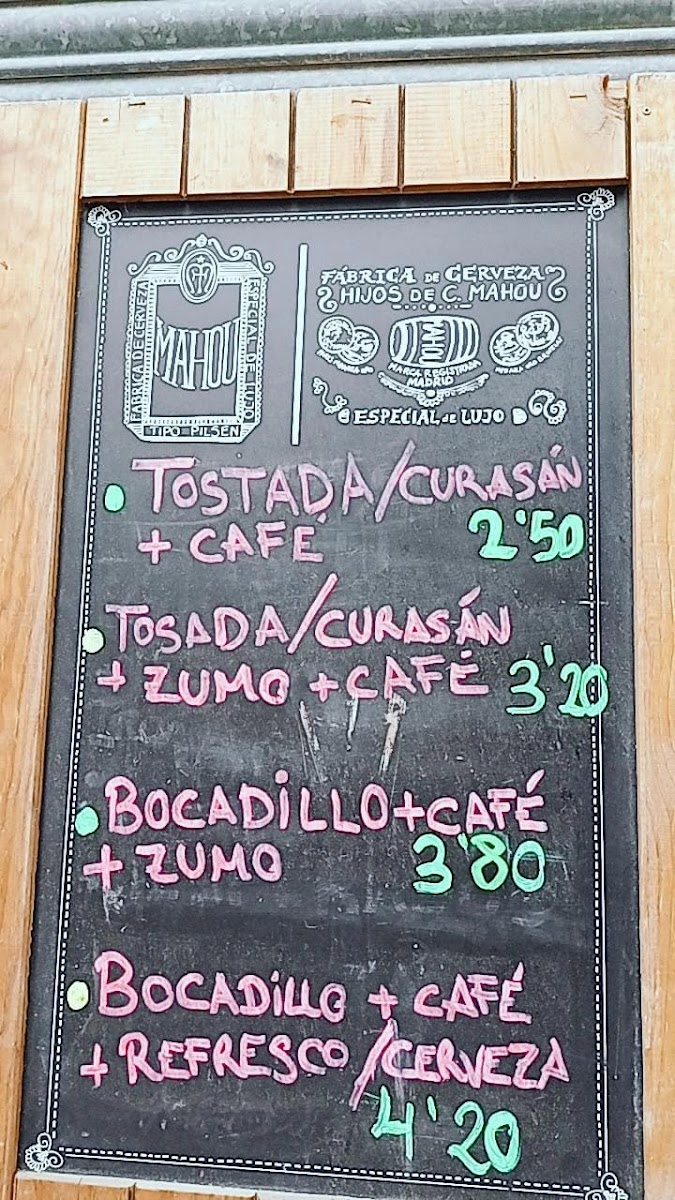 FÁBRICA DE CERVEZA
MAHOU
ESPECIAL DE LUJO
TIPO PILSEN
FÁBRICA DE CERVEZA
HIJOS DE C. MAHOU
MAHOU
MARCA REGISTRADA
MADRID
ESPECIAL de LUJO
TOSTADA/CURASÁN
+ CAFÉ 2'50
TOSADA/CURASÁN
+ ZUMO + CAFÉ 3'20
BOCADILLO+CAFÉ
+ ZUMO 3'80
BOCADILLO + CAFÉ
+ REFRESCO/CERVEZA
4'20